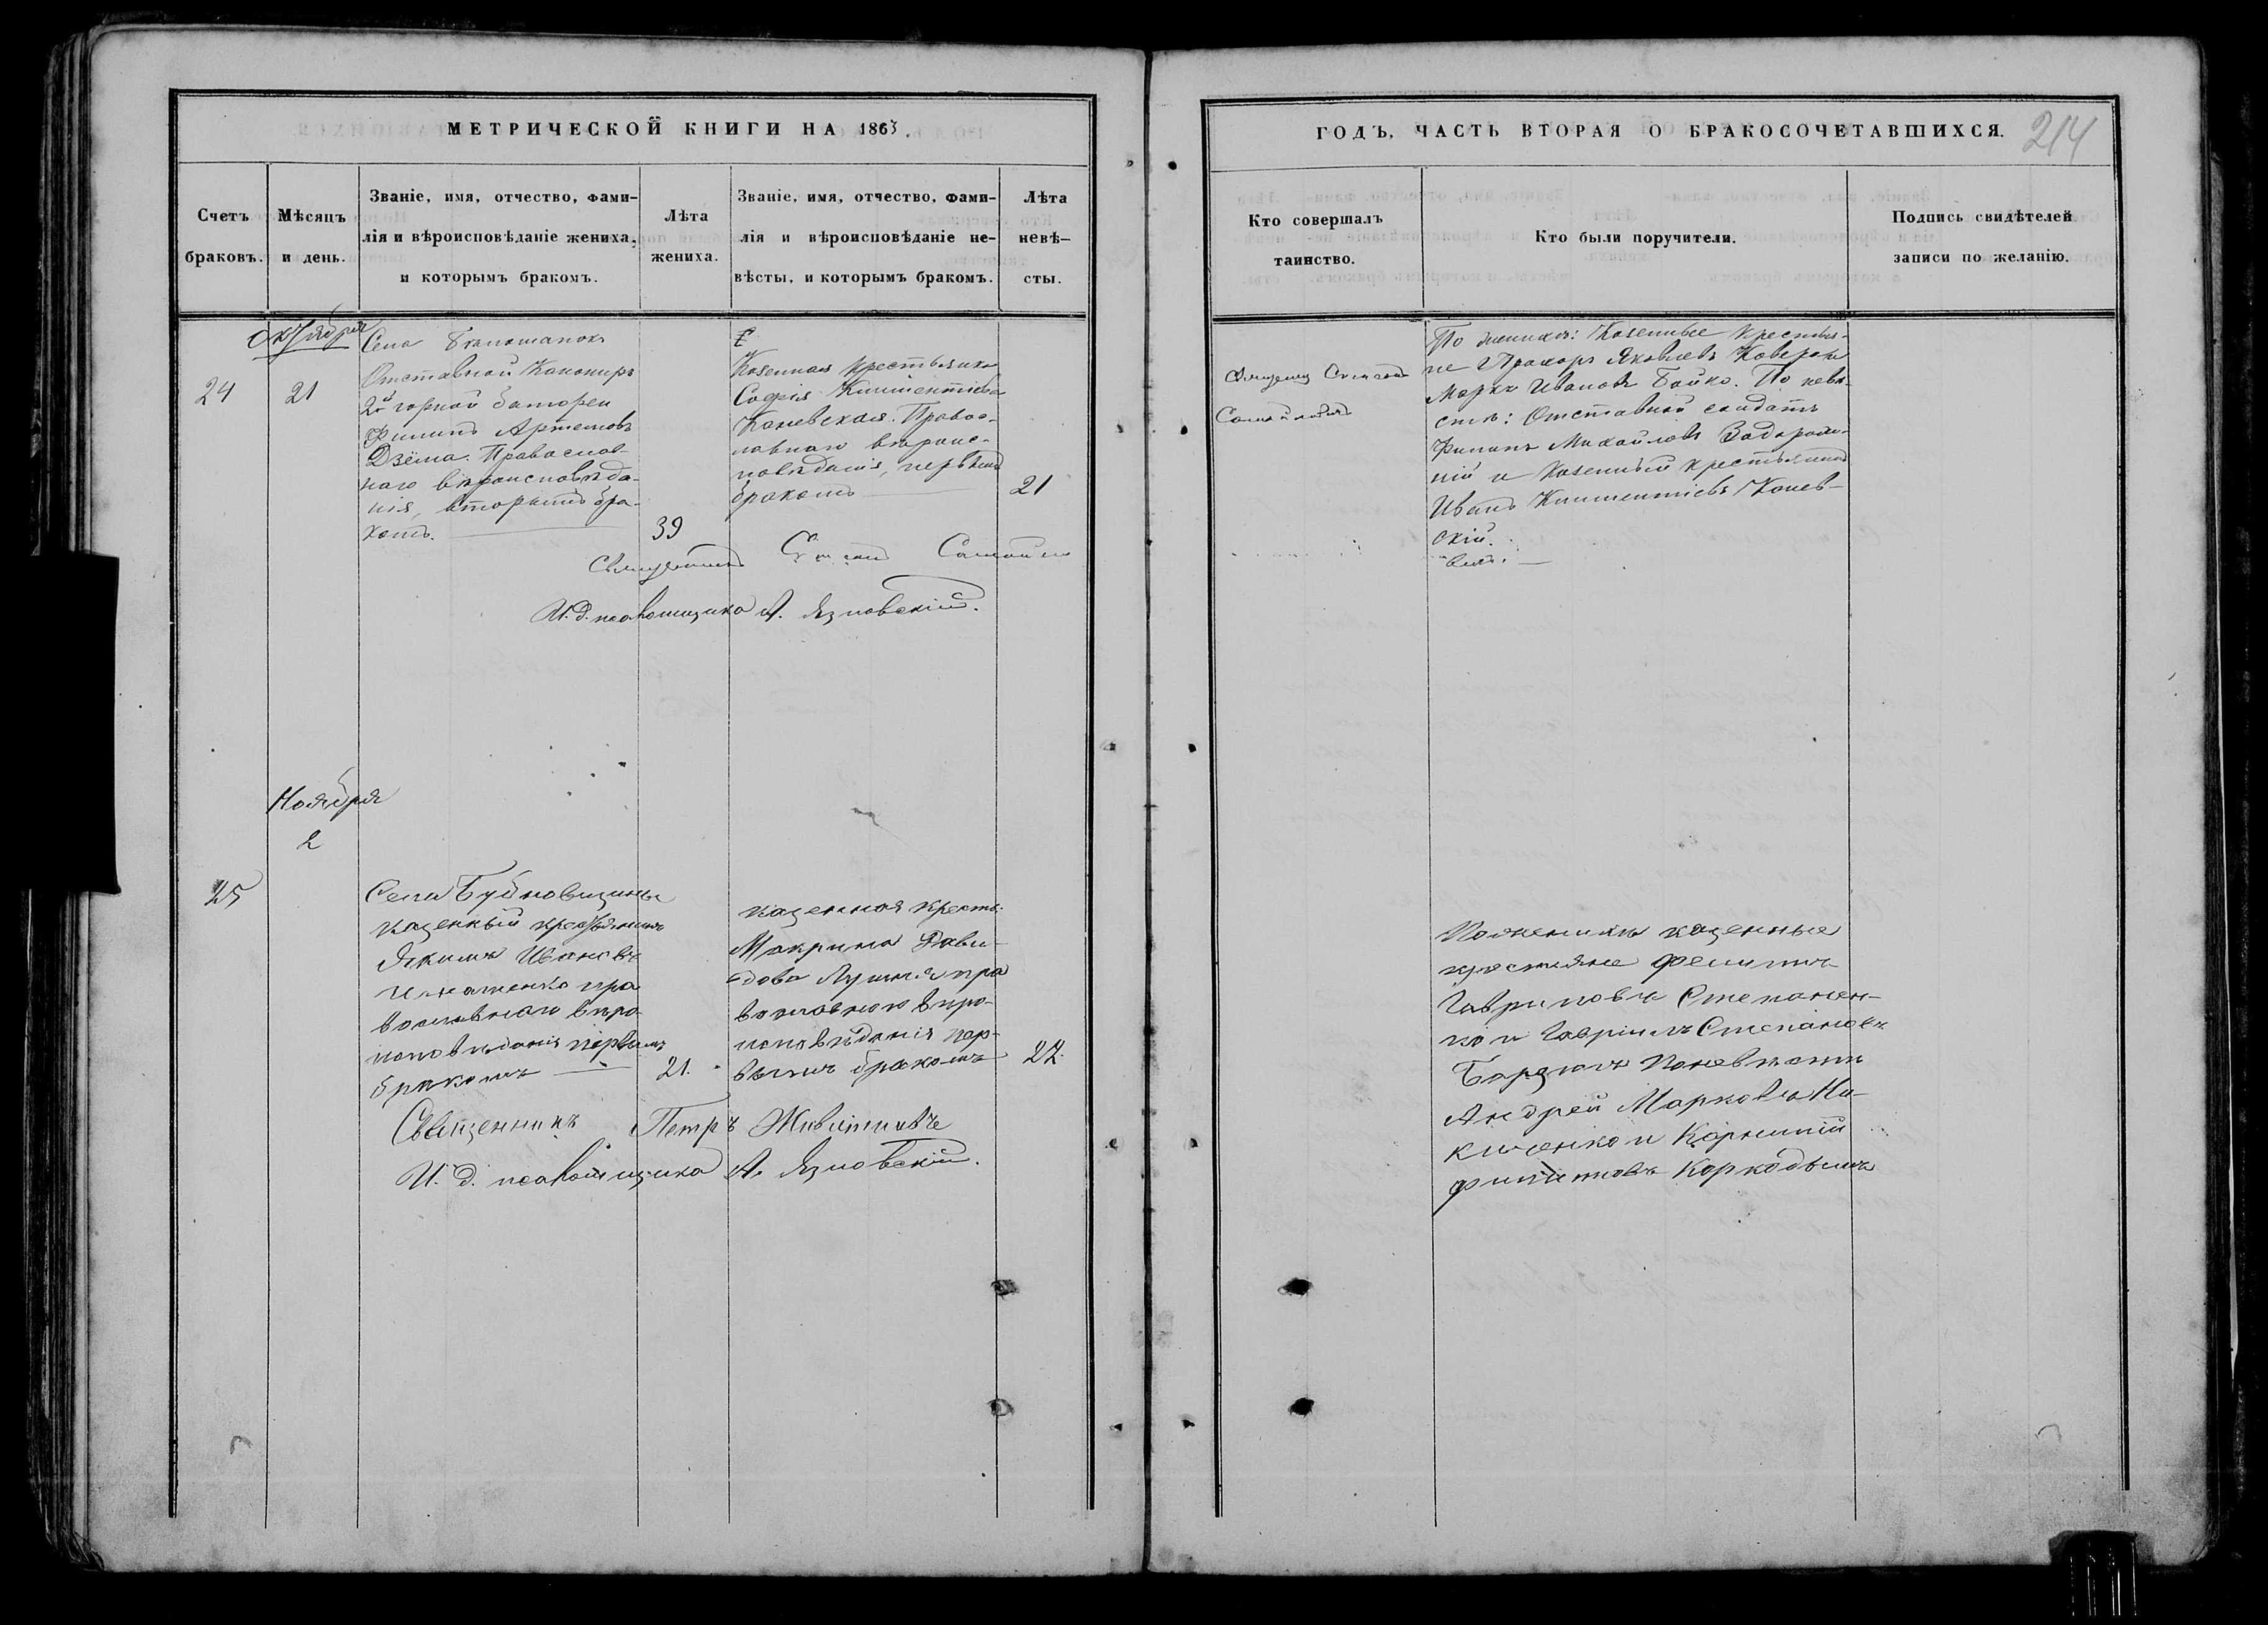 МЕТРИЧЕСКОЙ КНИГИ НА 1863.
Счетъ
браковъ.
Мѣсяцъ
и день.
Званіе, имя, отчество, фами-
лія и вѣроисповѣданіе жениха,
и которымъ бракомъ.
Лѣта
жениха.
Званіе, имя, отчество, фами-
лія и вѣроисповѣданіе не-
вѣсты, и которымъ бракомъ.
Лѣта
невѣ-
сты.
Октября
24
21
Села
Отставной Канониръ
2й горной батареи
Филипъ Артемовъ
Дзёма. Православ-
наго вѣроисповѣда-
нія, вторымъ бра-
комъ.
39
Казенная крестьянка
Софія Климентіева
Каневская. Правос-
лавнаго вѣроис-
повѣданія, первымъ
бракомъ
21
Священникъ
И. д. псаломщика А. Язловскій.
Ноября
2
25
Села Будновщины
казенный крестьянинъ
Якимъ Ивановъ
Игнатенко пра
вославнаго вѣро
исповѣданія первымъ
бракомъ
21.
казенная кресть:
Макрина Дави-
дова Луцыя пра
вославнаго вѣро-
исповѣданія пер-
вымъ бракомъ
22
Священникъ Петръ
И. д. псаломщика А. Язловскій.
ГОДЪ, ЧАСТЬ ВТОРАЯ О БРАКОСОЧЕТАВШИХСЯ.
214
Кто совершалъ
таинство.
Кто были поручители.
Подпись свидѣтелей
записи по желанію.
По женихѣ: Казенные крестья-
не Прохоръ Яковлевъ Коверза
Марко Ивановъ Бойко. По невѣ-
стѣ: Отставной солдатъ
Филипъ Михайловъ Задорож-
ній и Казенный крестьянинъ
Иванъ Климентіевъ Канев-
скій.
По женихѣ казенные
крестьяне Филипъ
Гавриловъ Степанен-
ко и Гавріилъ Степановъ
По невѣсти
Андрей Марковъ Ни-
киченко и Корнилій
Филиповъ